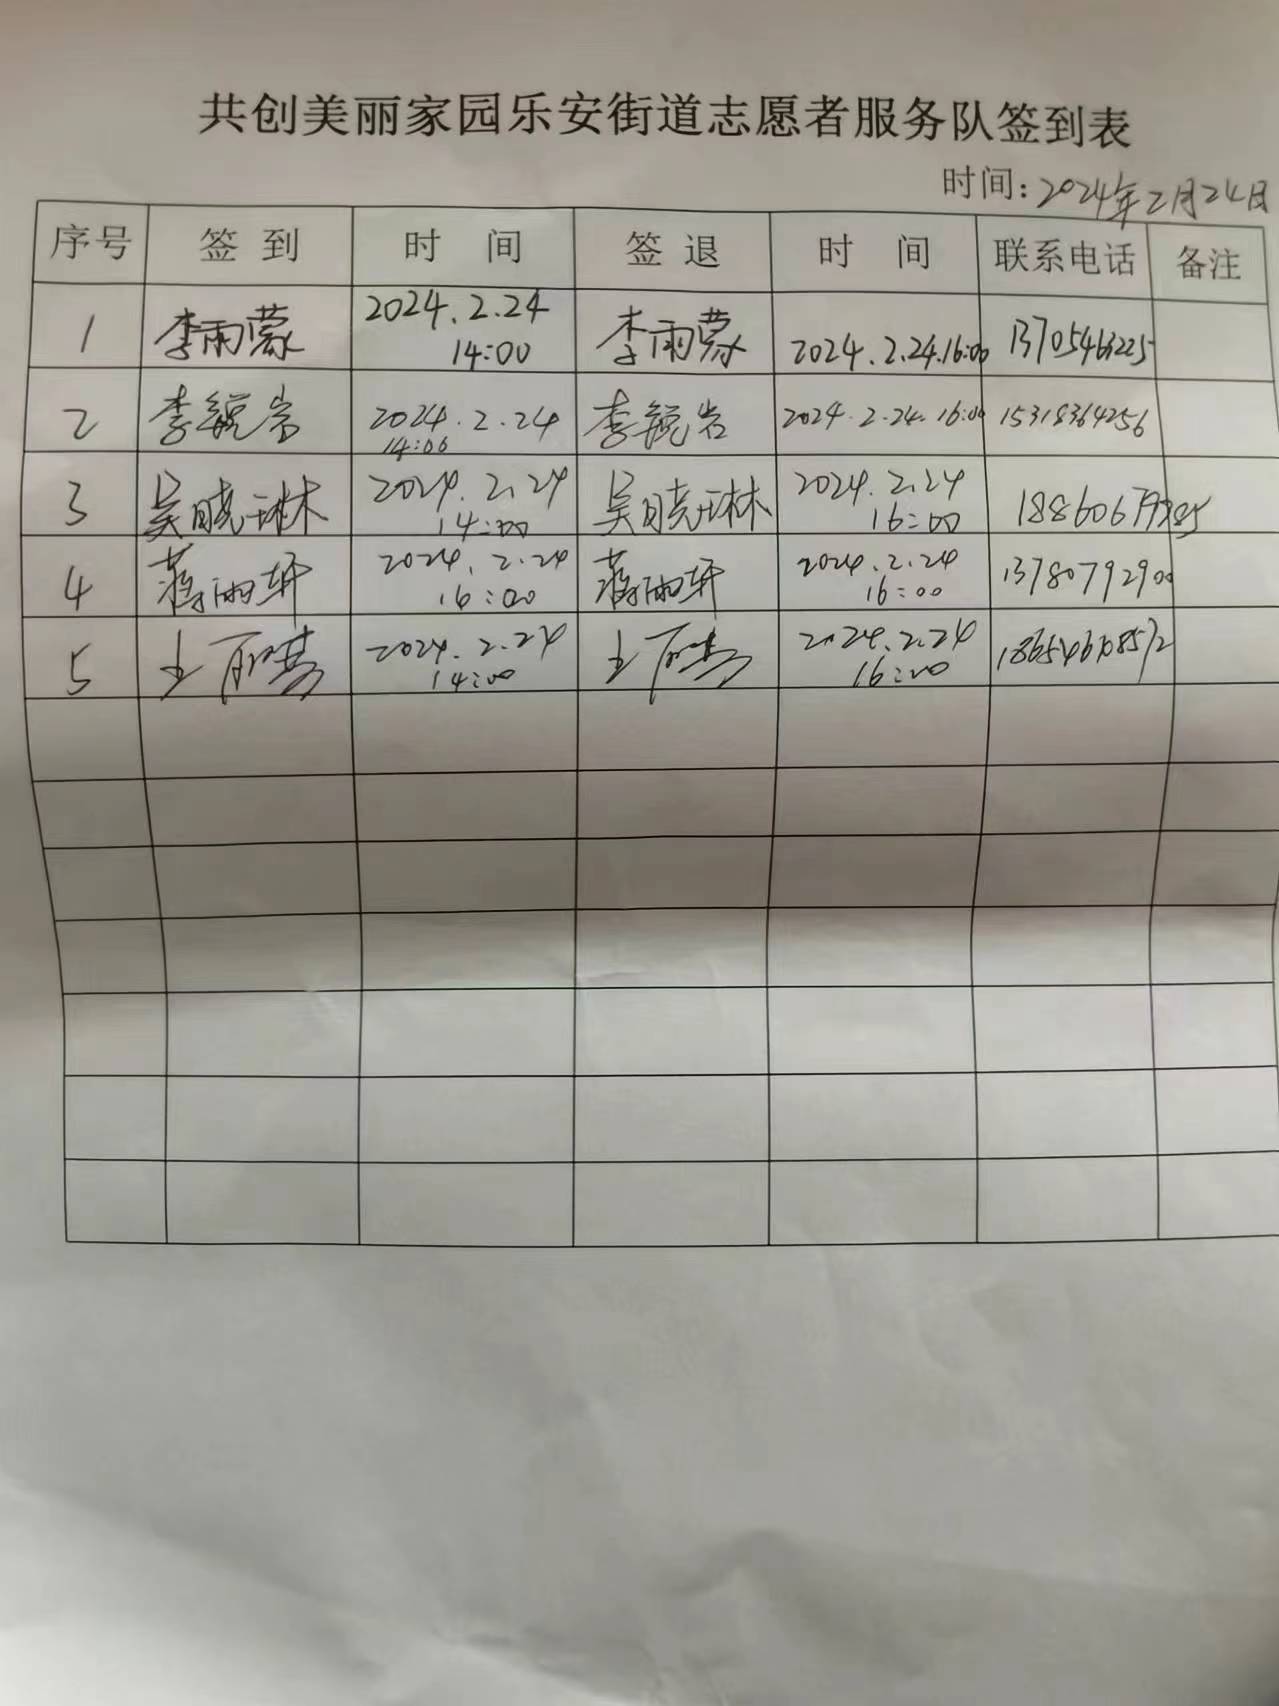 共创美丽家园乐安街道志愿者服务队签到表
时间：2024年2月24日
序号 签到 时间 签退 时间 联系电话 备注
1 李雨蒙 2024.2.24 14:00 李雨蒙 2024.2.24.16:00 13705463225
2 李锐岩 2024.2.24 14:00 李锐岩 2024.2.24.16:00 15318364256
3 吴晓琳 2024.2.24 14:00 吴晓琳 2024.2.24 16:00
4 蒋雨轩 2024.2.24 16:00 蒋雨轩 2024.2.24 16:00 13780792900
5 王 2024.2.24 14:00 王 2024.2.24 16:00